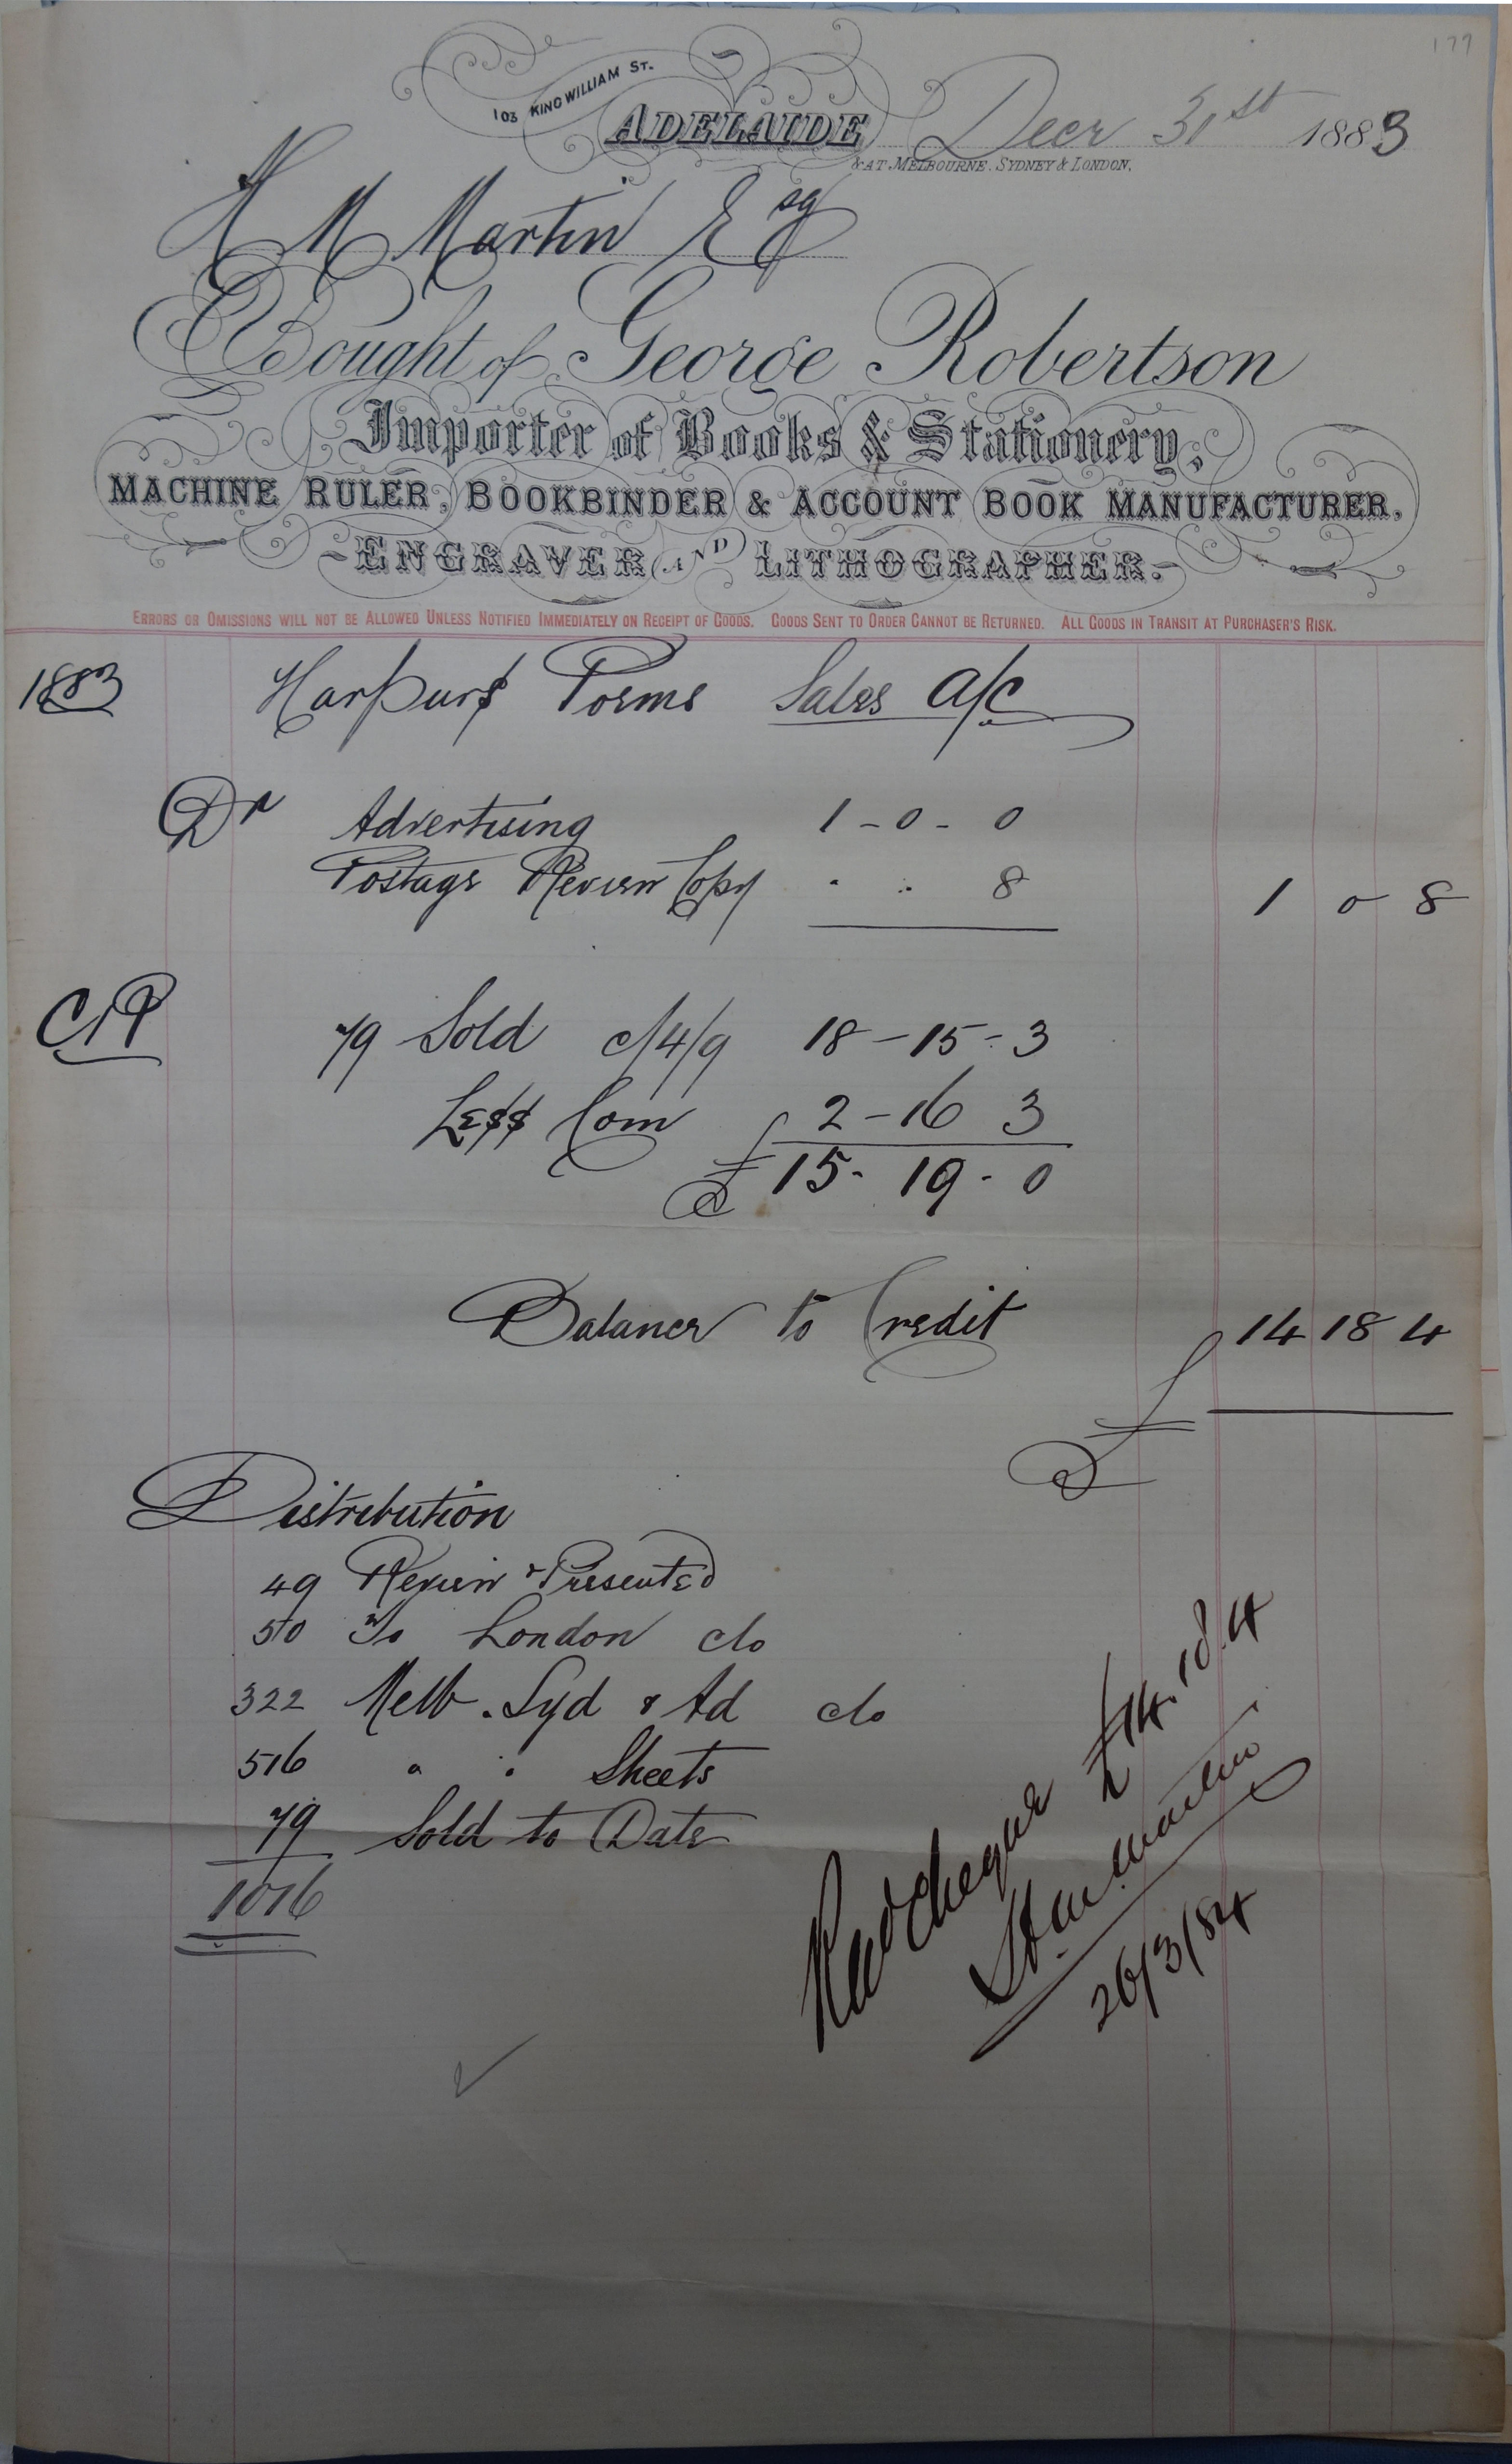 177
103 KING WILLIAM ST.
ADELAIDE Decr 31st 1883
& AT MELBOURNE. SYDNEY & LONDON.
H M Martin Esq
Bought of George Robertson
Importer of Books & Stationery,
MACHINE RULER, BOOKBINDER & ACCOUNT BOOK MANUFACTURER.
-ENGRAVER AND LITHOGRAPHER.-
ERRORS OR OMISSIONS WILL NOT BE ALLOWED UNLESS NOTIFIED IMMEDIATELY ON RECEIPT OF GOODS. GOODS SENT TO ORDER CANNOT BE RETURNED. ALL GOODS IN TRANSIT AT PURCHASER'S RISK.
1883 Harpurs Poems Sales a/c
Dr Advertising 1-0-0
Postage Review Copy " " 8 1 0 8
CR 79 Sold c/4/9 18-15-3
Less Com 2-16 3
£15-19-0
Balance to Credit 14 18 4
£
Distribution
49 Review & Presented
50 To London clo
322 Melb. Syd & Ad clo
516 " " Sheets
79 Sold to Date
1016
Recd cheque £14.18.4
H M Martin
26/3/84